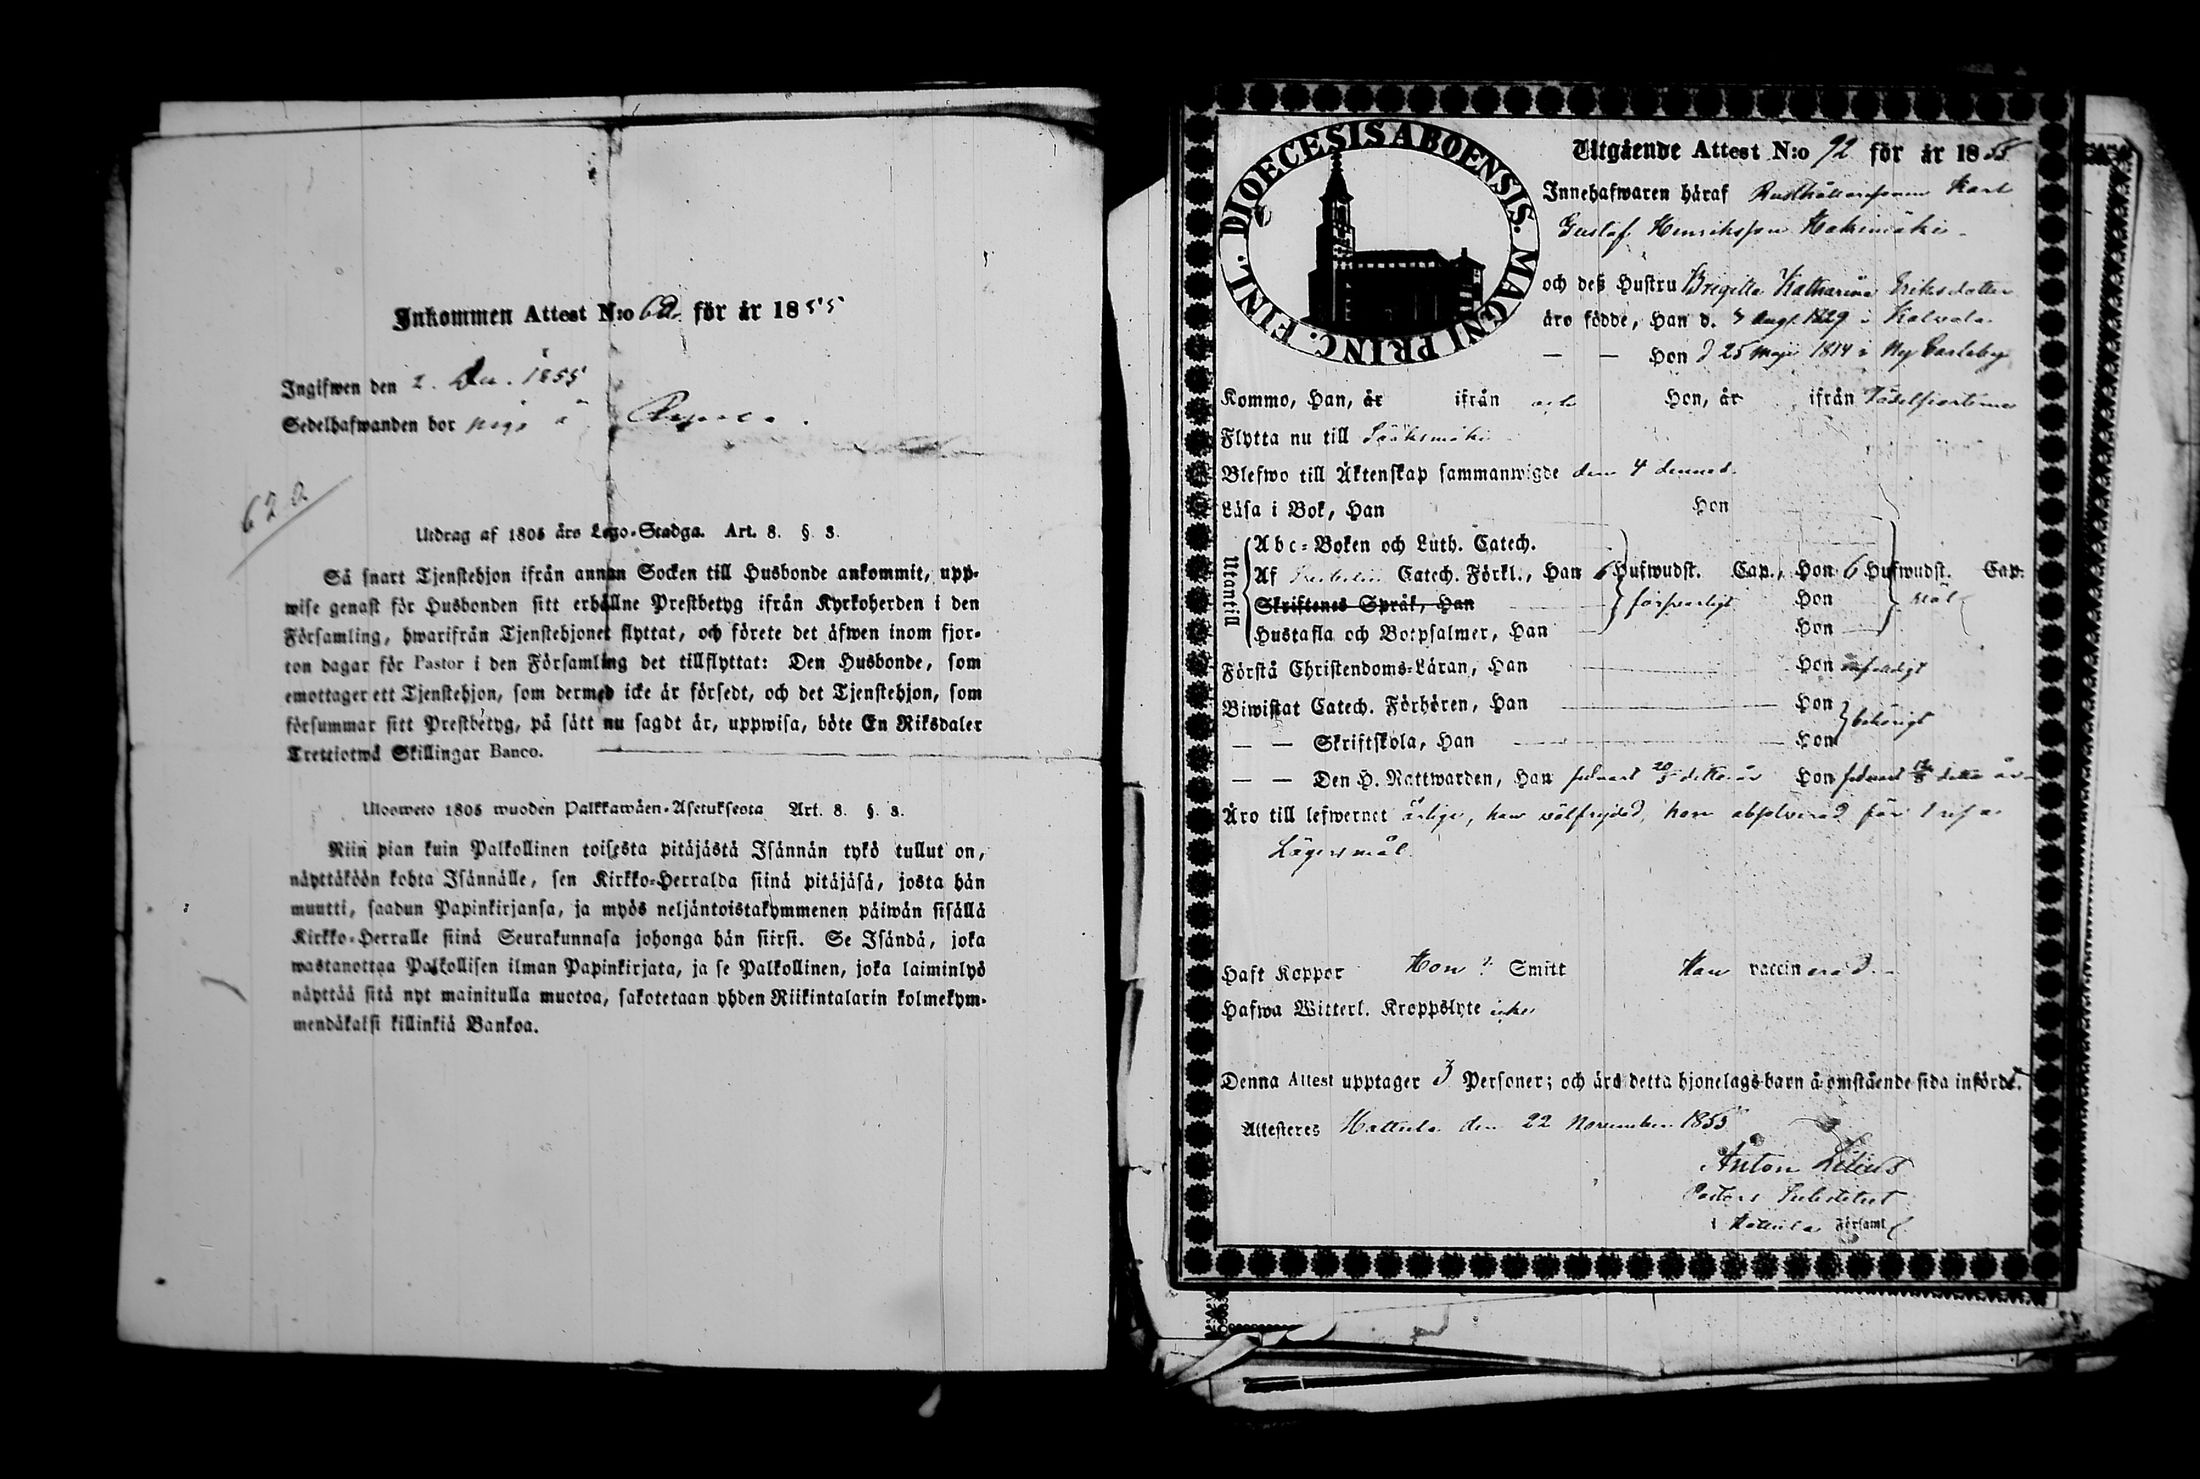 Inkommen Attest N:o 62 för år 1855
Ingifwen den 2. Dec. 1855
Sedelhafwanden bor piga å
62 a
Utdrag af 1805 års Lego-Stadga. Art. 8. § 3.
Så snart Tjenstehjon ifrån annan Socken till Husbonde ankommit, upp-
wise genast för Husbonden sitt erhållne Prestbetyg ifrån Kyrkoherden i den
Församling, hwarifrån Tjenstehjonet flyttat, och förete det äfwen inom fjor-
ton dagar för Pastor i den Församling det tillflyttat: Den Husbonde, som
emottager ett Tjenstehjon, som dermed icke är försedt, och det Tjenstehjon, som
försummar sitt Prestbetyg, på sätt nu sagdt är, uppwisa, böte En Riksdaler
Trettiotwå Skillingar Banco.
Ulosweto 1805 wuoden Palkkawäen-Asetuksesta Art. 8. §. 3.
Niin pian kuin Palkollinen toisesta pitäjästä Isännän tykö tullut on,
näyttäköön kohta Isännälle, sen Kirkko-Herralda siinä pitäjäsä, josta hän
muutti, saadun Papinkirjansa, ja myös neljäntoistakymmenen päiwän sisällä
Kirkko-Herralle siinä Seurakunnasa johonga hän siirsi. Se Isändä, joka
wastanottaa Palkollisen ilman Papinkirjata, ja se Palkollinen, joka laiminlyö
näyttää sitä nyt mainitulla muotoa, sakotetaan yhden Riikintalarin kolmekym-
mendäkaksi killinkiä Bankoa.
DIOECESIS ABOENSIS. MAGNI PRINC. FINL.
Utgående Attest N:o 92 för år 1855
Innehafwaren häraf Rusthållaresonen Karl
Gustaf Henriksson Hakimäki
och deß Hustru Brigitta Katharina Eriksdotter
äro födde, Han d. 7 Aug. 1829 i Kalvola
— — Hon d 25 Maji 1814 i Ny Carleby
Kommo, Han, år ifrån Hon, år ifrån
Flytta nu till Sääksmäki
Blefwo till Äktenskap sammanwigde den 4 dennes
Läsa i Bok, Han Hon
Utantill
Abc-Boken och Luth. Catech.
Af Catech. Förkl., Han 6 Hufwudst. Cap., Hon 6 Hufwudst. Cap.
Skriftenes Språk, Han försvarligt Hon
Hustafla och Botpsalmer, Han Hon
Förstå Christendoms-Läran, Han Hon
Biwistat Catech. Förhören, Han Hon
— — Skriftskola, Han Hon behörigt
— — Den H. Nattwarden, Han senast detta år Hon senast detta år
Äro till lefwernet ärlige, han wälfrejdad, hon absolverad för 1 resa
Lägersmål.
Haft Koppor Hon? Smitt Han vaccinerad.
Hafwa Witterl. Kroppslyte icke
Denna Attest upptager 3 Personer; och äro detta hjonelags barn å omstående sida införde.
Attesteres Hattula den 22 November 1855
Anton Lilius
Pastors Substitut
i Hattula Församl